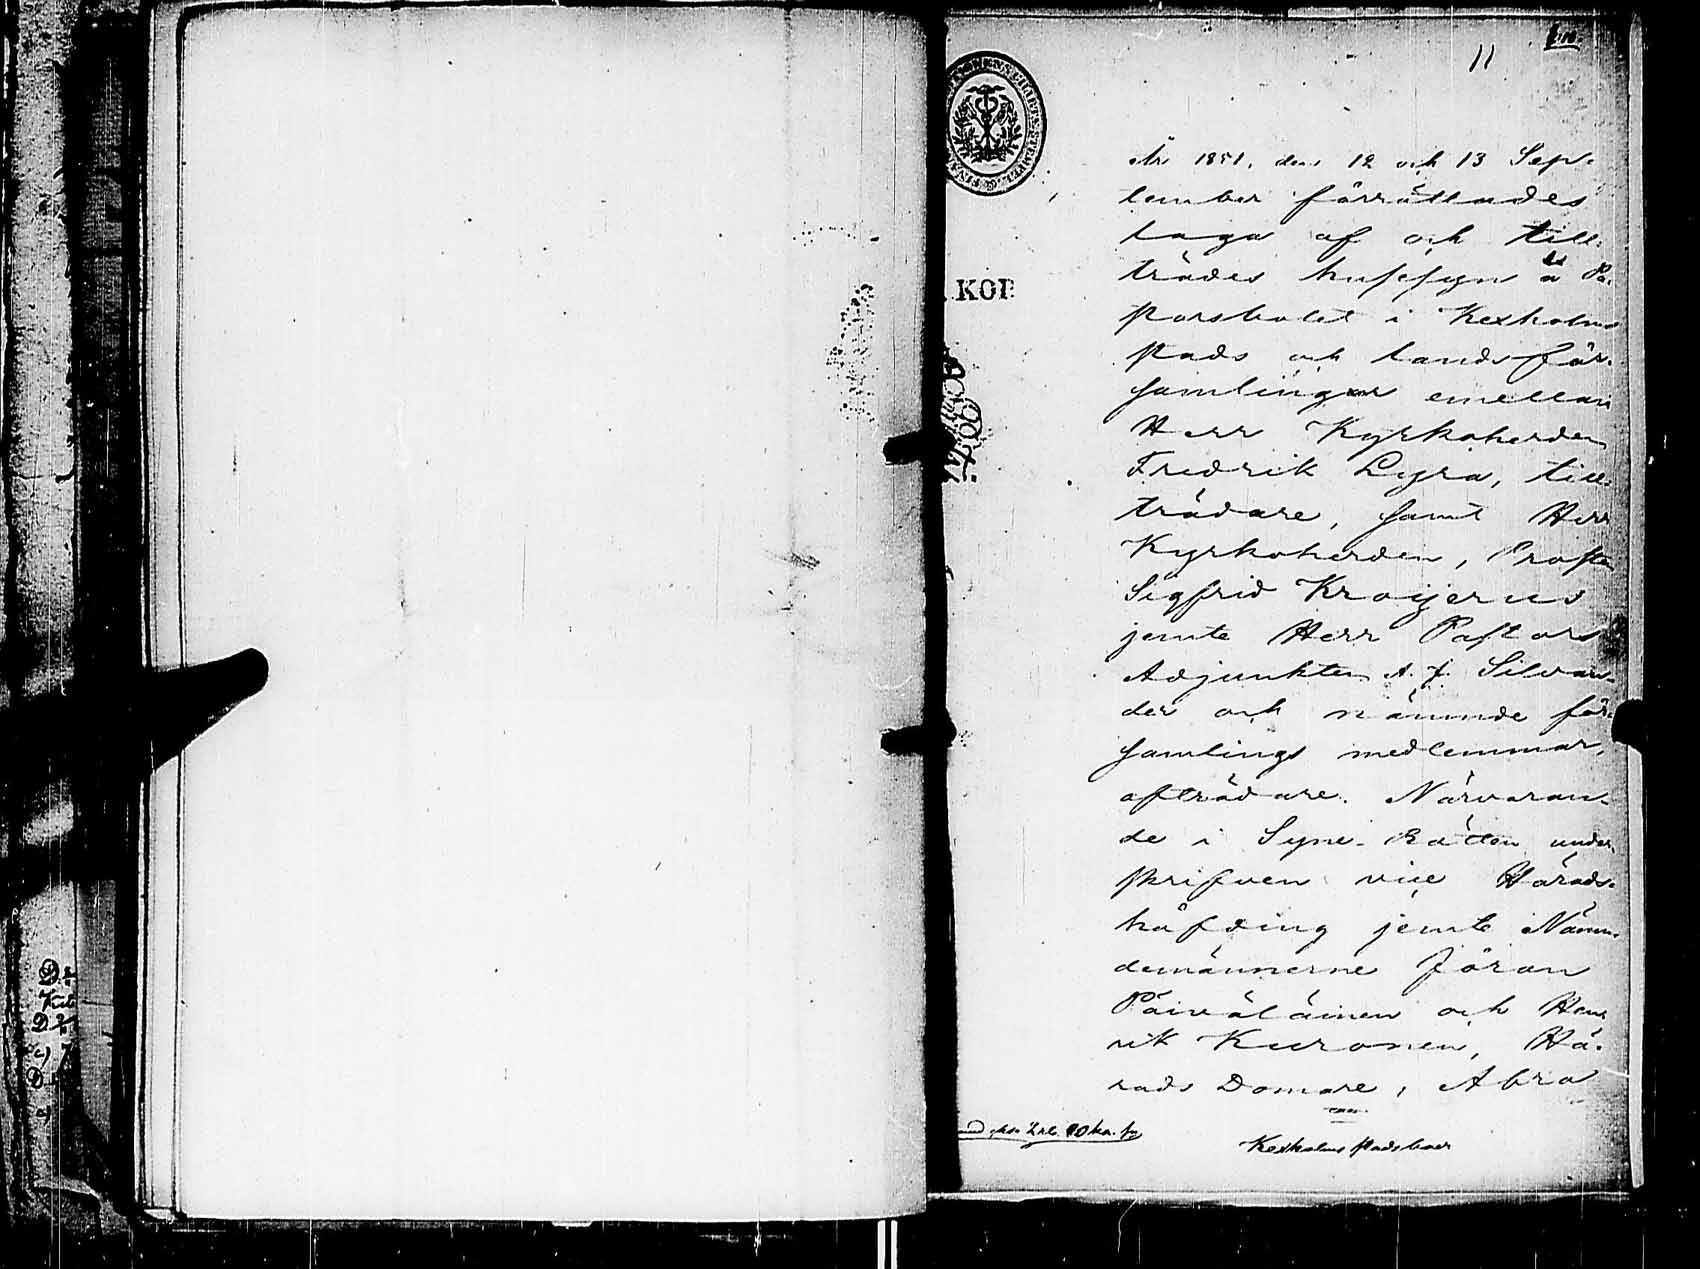 11
KOP
År 1851, den 12 och 13 Sep-
tember förrättades
laga af och till-
trädes hussyn å Pa-
storsbolet i Kexholms
stads och landsför-
samlingar emellan
Herr Kyrkoherden
Fredrik Lyra, till-
trädare, samt Herr
Kyrkoherden, Prosten
Sigfrid Kroijerus
jemte Herr Pastors
Adjunkten A. J. Silvan-
der och nämnde för-
samlings medlemmar,
afträdare. Närvaran-
de i Syne-Rätten under-
skrifven vice Härads-
höfding jemte Nämn-
demännerne Jöran
Päiväläinen och Hen-
rik Kuronen, Hä-
rads Domare, Abra
Kexholms stads